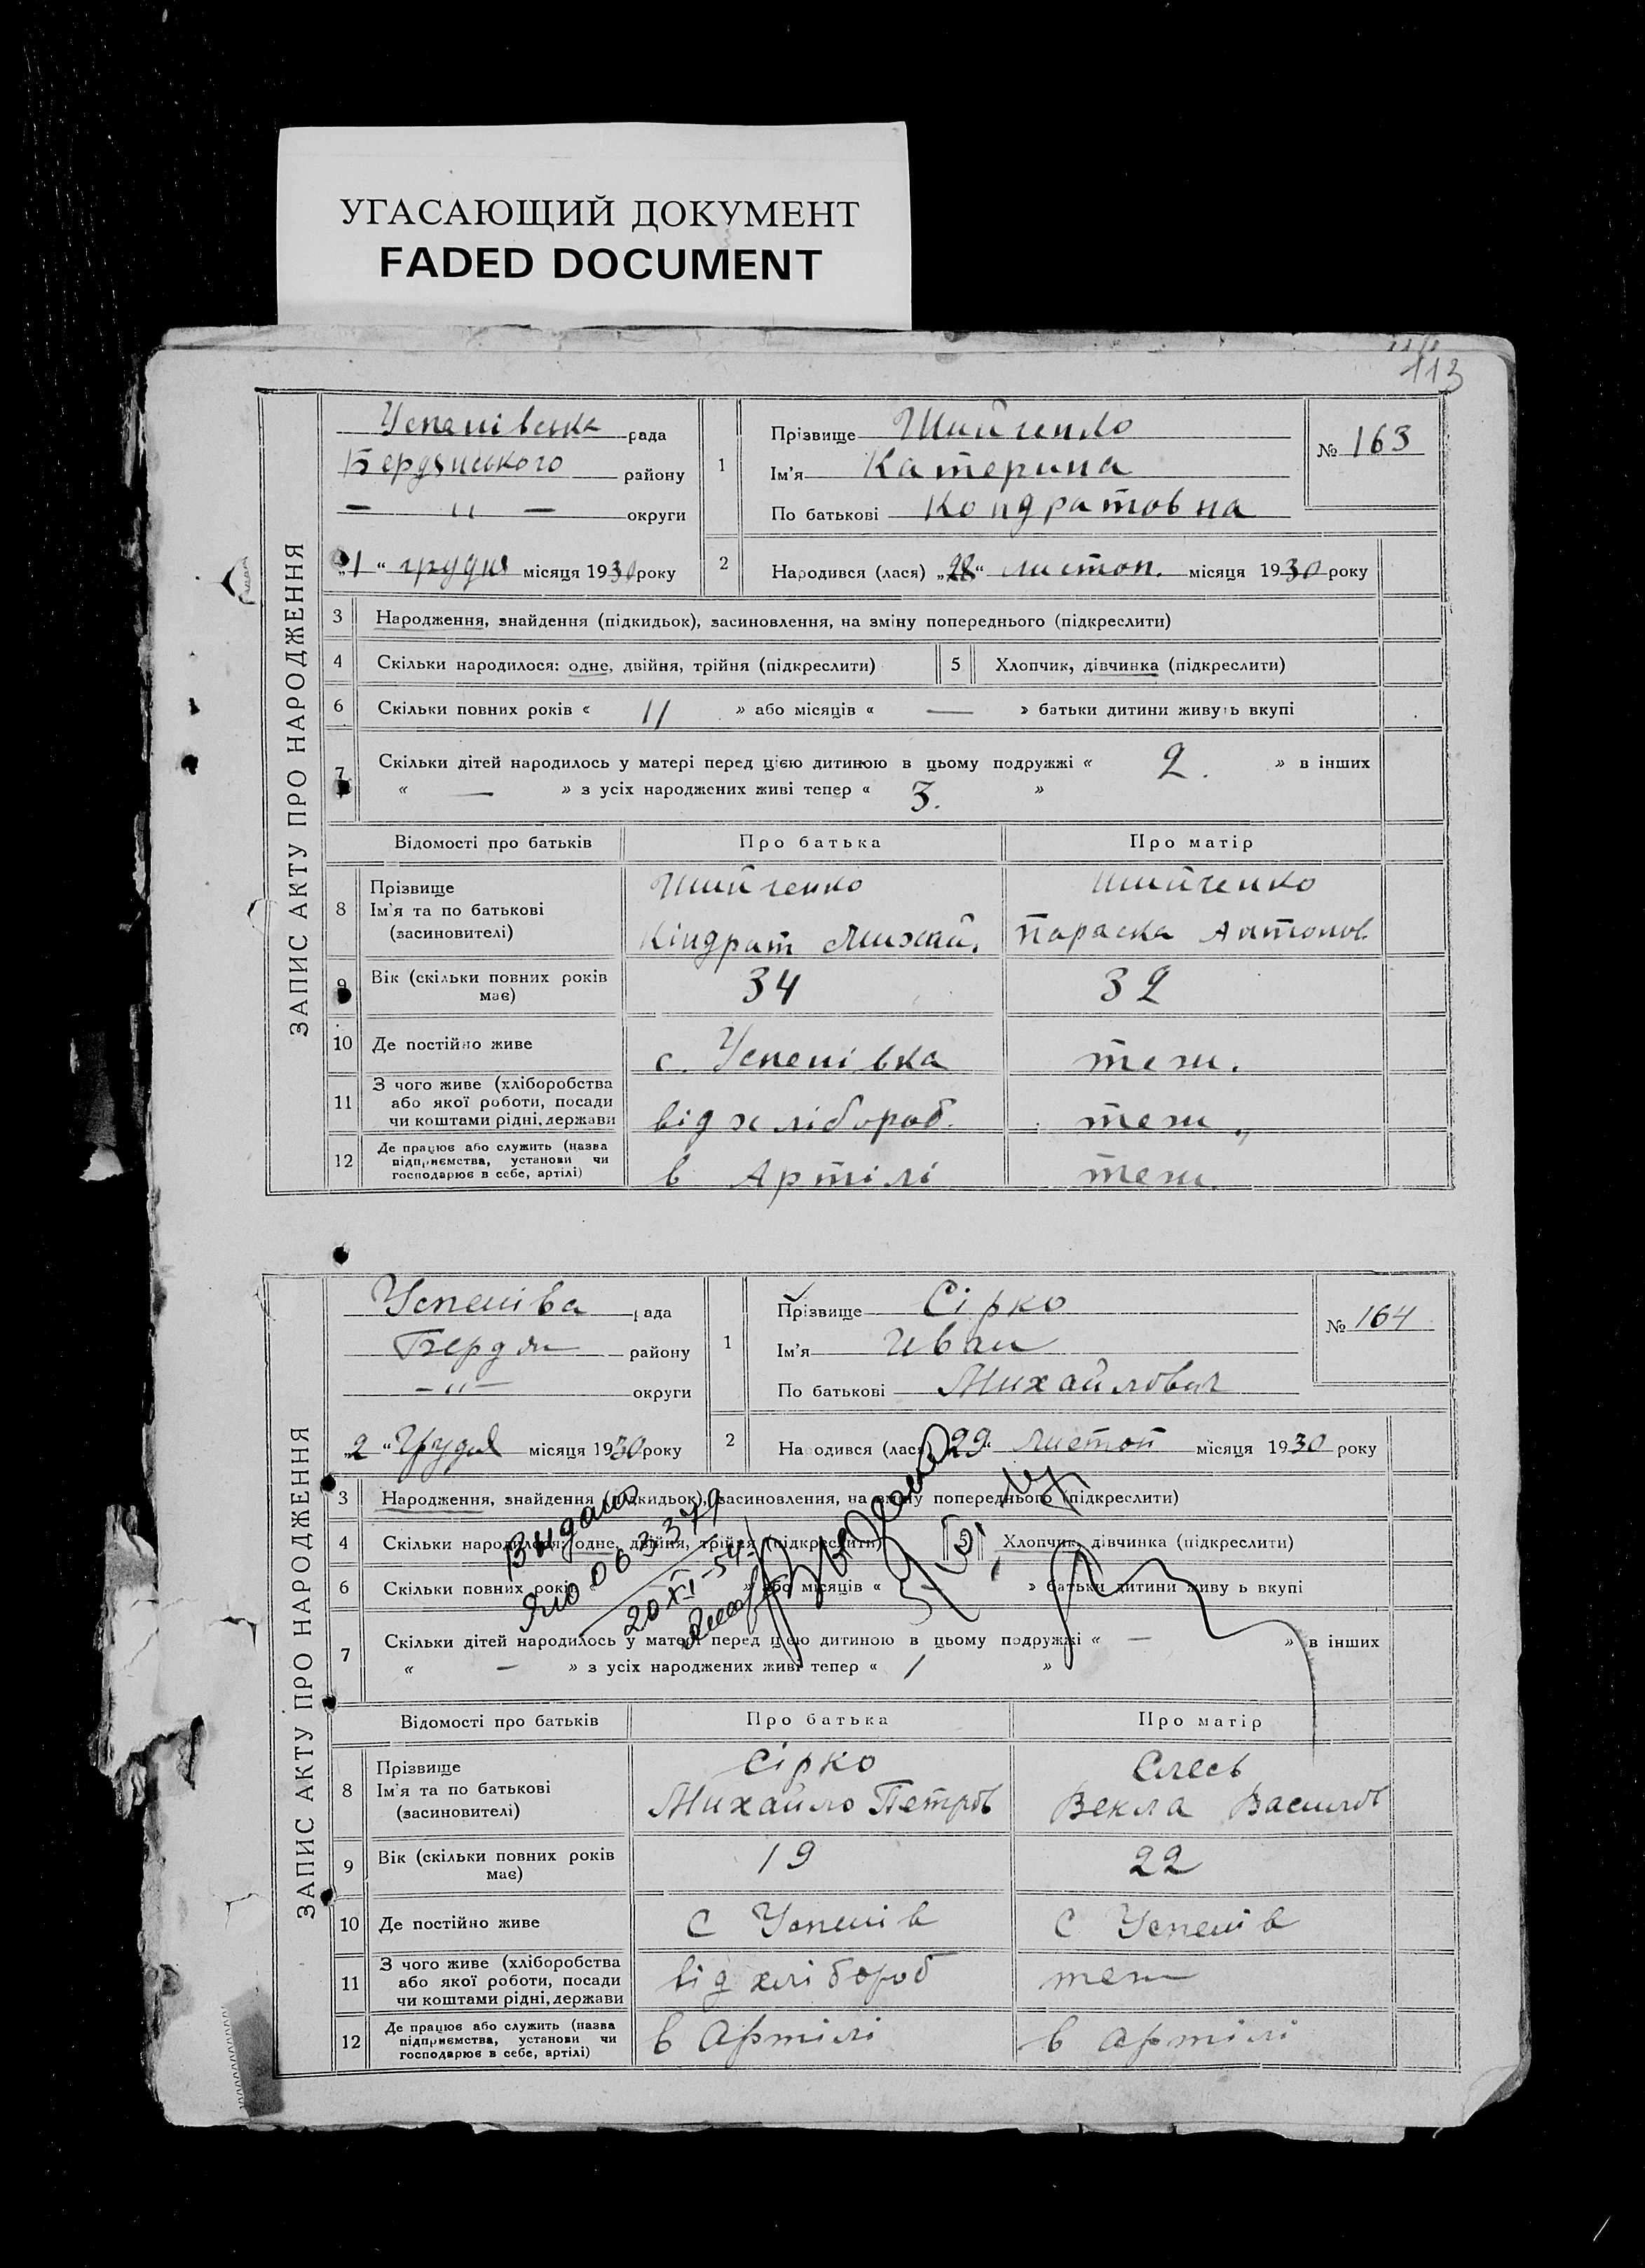 УГАСАЮЩИЙ ДОКУМЕНТ
FADED DOCUMENT
113
ЗАПИС АКТУ ПРО НАРОДЖЕННЯ
Успенівська рада
Бердянського району
— " — округи
„1“ грудня місяця 1930 року
1
Прізвище
Ім'я Катерина
По батькові Кондратовна
№ 163
2
Народився (лася) „28“ листоп. місяця 1930 року
3 Народження, знайдення (підкидьок), засиновлення, на зміну попереднього (підкреслити)
4 Скільки народилося: одне, двійня, трійня (підкреслити)
5 Хлопчик, дівчинка (підкреслити)
6 Скільки повних років « 11 » або місяців « — » батьки дитини живуть вкупі
7 Скільки дітей народилось у матері перед цією дитиною в цьому подружжі « 2. » в інших
« — » з усіх народжених живі тепер « 3. »
Відомості про батьків
Про батька
Про матір
8 Прізвище
Ім'я та по батькові
(засновителі)
Кіндрат Михай.
Параска Антонов.
9 Вік (скільки повних років
має)
34
32
10 Де постійно живе
с. Успенівка
теж.
11 З чого живе (хліборобства
або якої роботи, посади
чи коштами рідні, держави
від хлібороб.
теж„
12 Де працює або служить (назва
підприємства, установи чи
господарює в себе, артілі)
в Артілі
теж.
ЗАПИС АКТУ ПРО НАРОДЖЕННЯ
Успеніва рада
Бердян району
— " — округи
„2“ Грудня місяця 1930 року
1
Прізвище Сірко
Ім'я Иван
По батькові Михайлович
№ 164
2
Народився (лася) „29“ листоп місяця 1930 року
3 Народження, знайдення (підкидьок), засиновлення, на зміну попереднього (підкреслити)
4 Скільки народилося: одне, двійня, трійня (підкреслити)
5 Хлопчик, дівчинка (підкреслити)
6 Скільки повних років » або місяців « » батьки дитини живу ь вкупі
Видано
ЯЮ 063379
20 XI-54
7 Скільки дітей народилось у матері перед цією дитиною в цьому подружжі « — » в інших
« — » з усіх народжених живі тепер « 1 »
Відомості про батьків
Про батька
Про матір
8 Прізвище
Ім'я та по батькові
(засиновителі)
Сірко
Михайло Петров
Векла Васильов
9 Вік (скільки повних років
має)
19
22
10 Де постійно живе
С Успенів
С Успенів
11 З чого живе (хліборобства
або якої роботи, посади
чи коштами рідні, держави
від хлібороб
теж
12 Де працює або служить (назва
підприємства, установи чи
господарює в себе, артілі)
в Артілі
в артілі